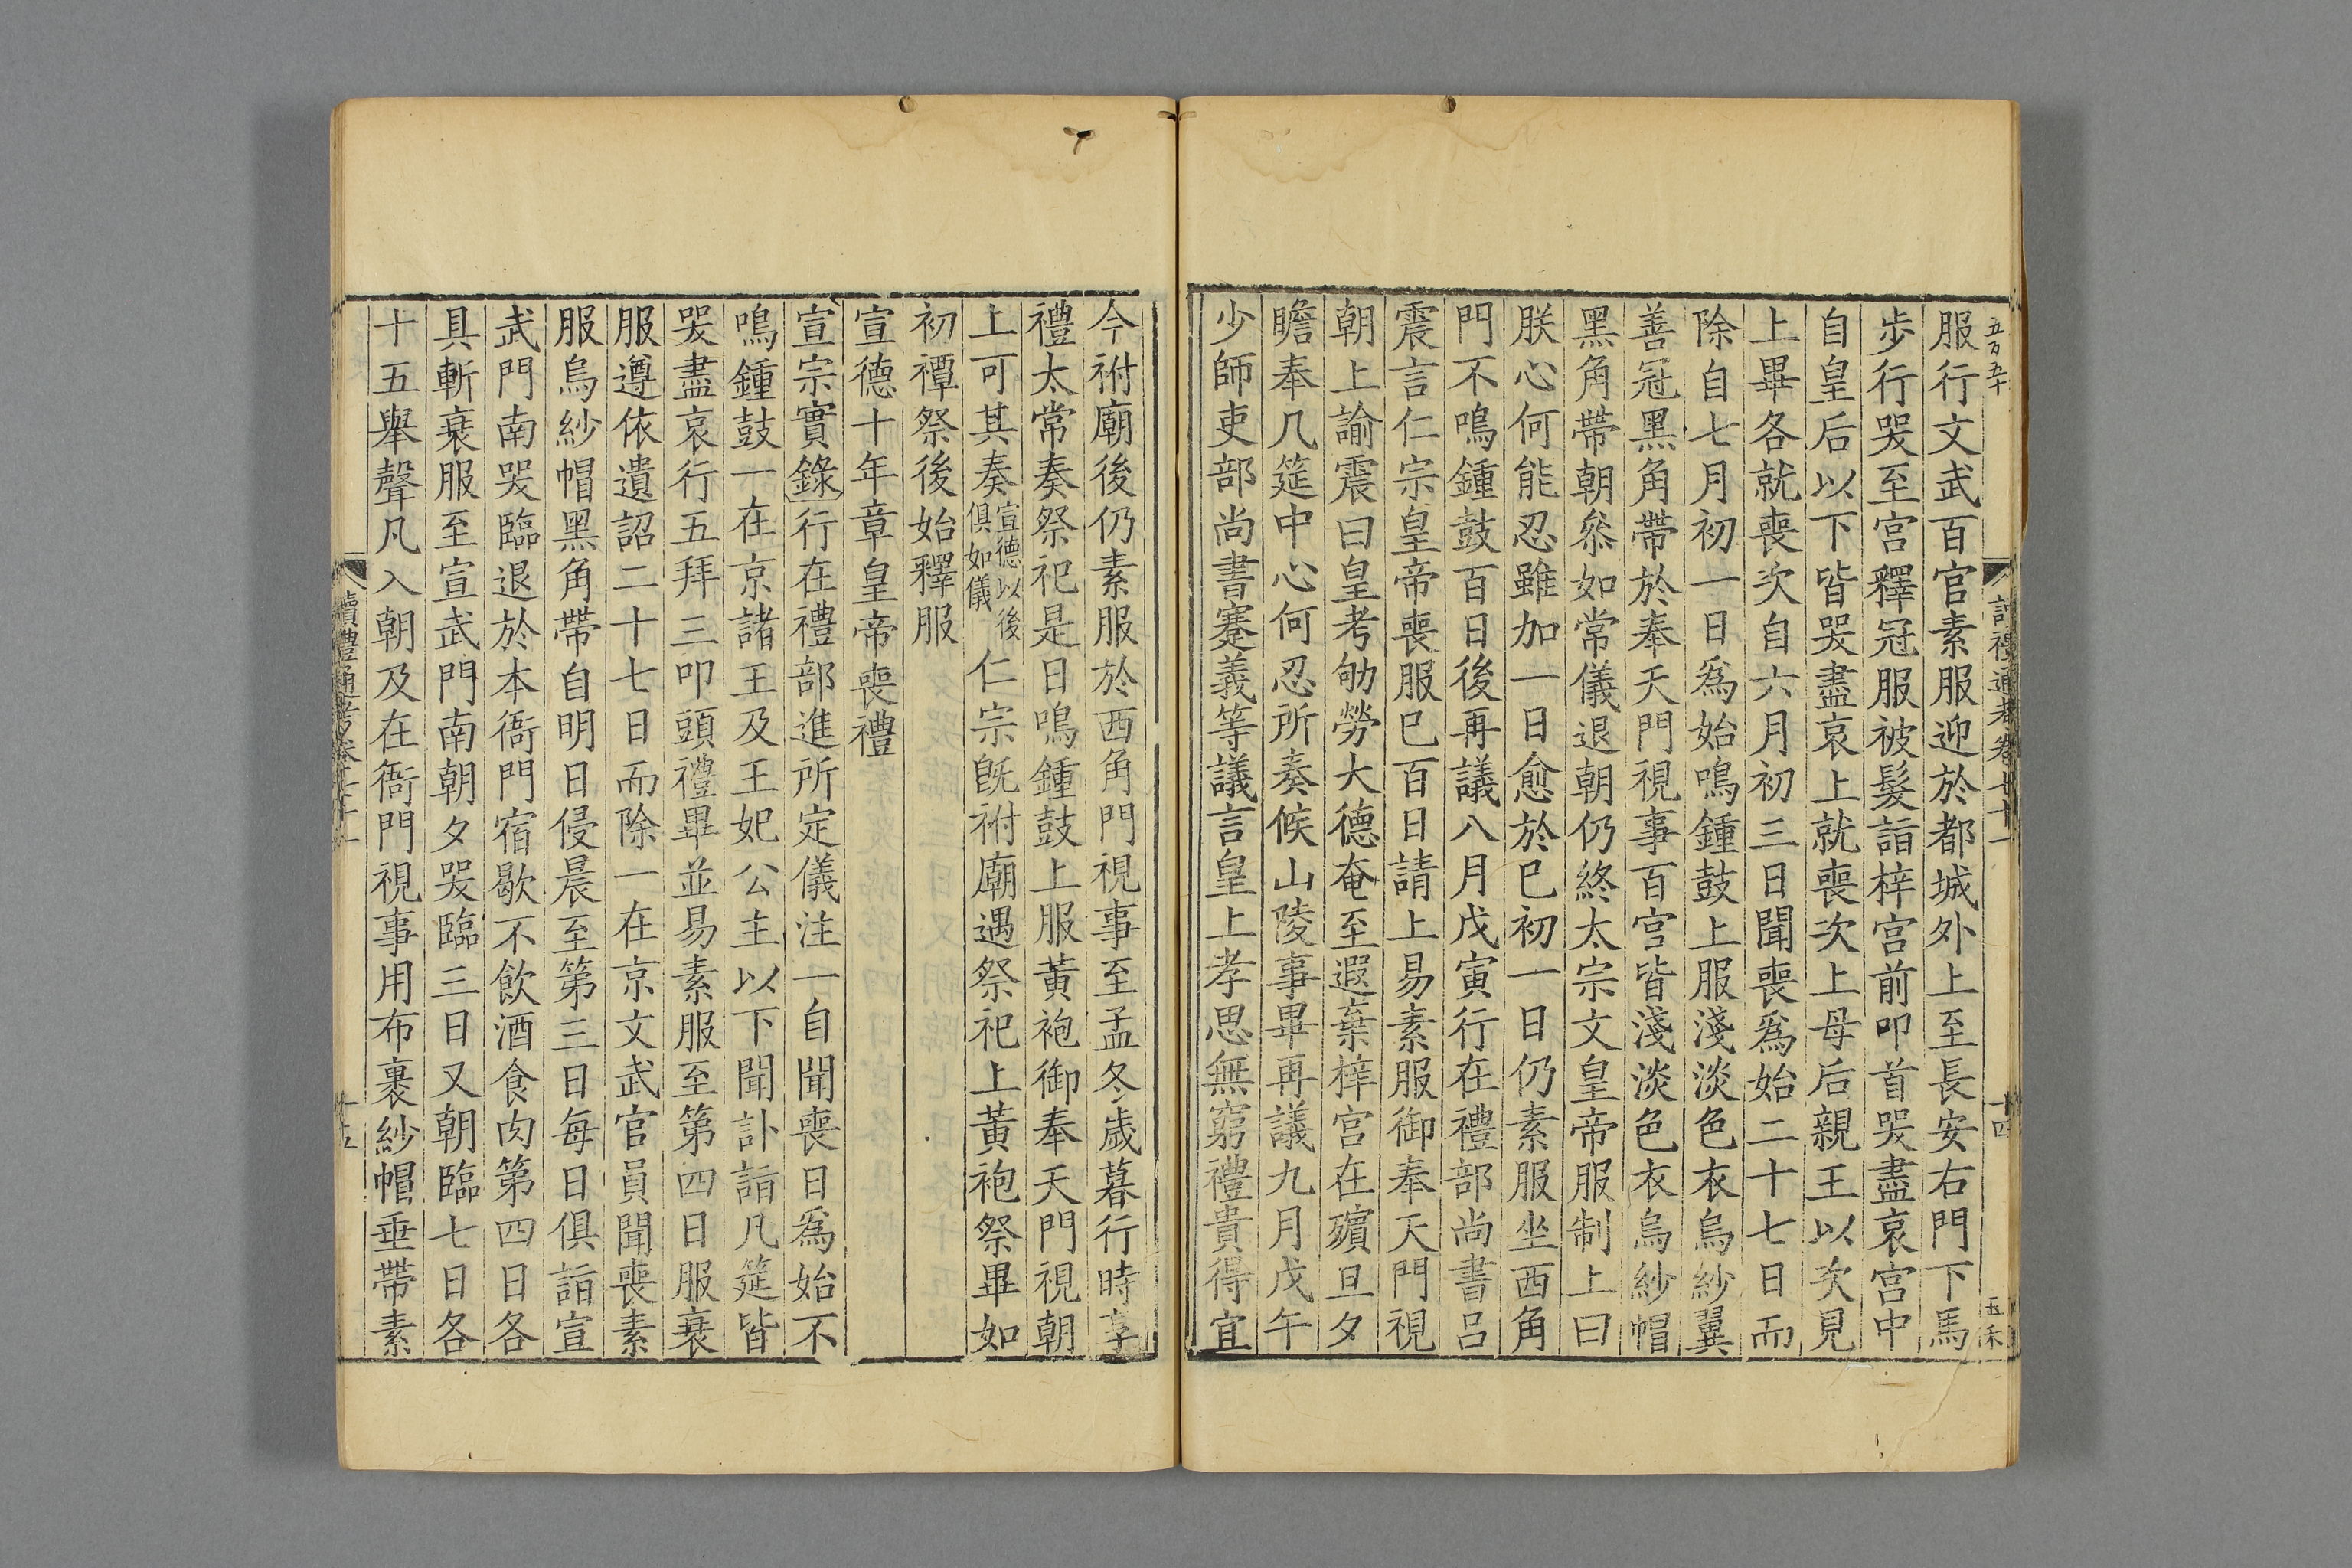 五百五十
讀禮通考卷七十一
十四
玉禾
服行文武百官素服迎於都城外上至長安右門下馬
步行哭至宮釋冠服被髮詣梓宮前叩首哭盡哀宮中
自皇后以下皆哭盡哀上就喪次上母后親王以次見
上畢各就喪次自六月初三日聞喪爲始二十七日而
除自七月初一日爲始鳴鍾鼓上服淺淡色衣烏紗翼
善冠黑角帶於奉天門視事百官皆淺淡色衣烏紗帽
黑角帶朝叅如常儀退朝仍終太宗文皇帝服制上曰
朕心何能忍雖加一日愈於已初一日仍素服坐西角
門不鳴鍾鼓百日後再議八月戊寅行在禮部尚書呂
震言仁宗皇帝喪服已百日請上易素服御奉天門視
朝上諭震曰皇考劬勞大德奄至遐棄梓宮在殯旦夕
瞻奉几筵中心何忍所奏候山陵事畢再議九月戊午
少師吏部尚書蹇義等議言皇上孝思無窮禮貴得宜
今祔廟後仍素服於西角門視事至孟冬歲暮行時享
禮太常奏祭祀是日鳴鍾鼓上服黃袍御奉天門視朝
上可其奏宣德以後俱如儀 仁宗旣祔廟遇祭祀上黃袍祭畢如
初禫祭後始釋服
宣德十年章皇帝喪禮
宣宗實錄行在禮部進所定儀注一自聞喪日爲始不
鳴鍾鼓一在京諸王及王妃公主以下聞訃詣几筵皆
哭盡哀行五拜三叩頭禮畢並易素服至第四日服衰
服遵依遺詔二十七日而除一在京文武官員聞喪素
服烏紗帽黑角帶自明日侵晨至第三日每日俱詣宣
武門南哭臨退於本衙門宿歇不飲酒食肉第四日各
具斬衰服至宣武門南朝夕哭臨三日又朝臨七日各
十五舉聲凡入朝及在衙門視事用布裹紗帽垂帶素
讀禮通考卷七十一
十五